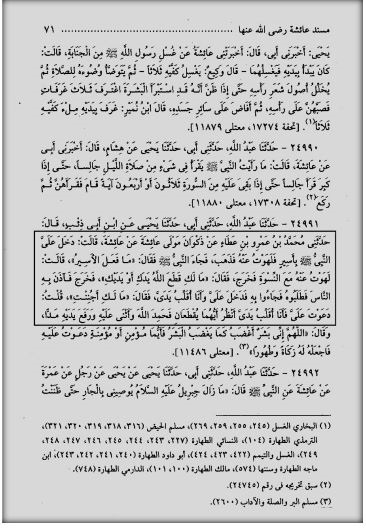 مسند عائشة رضى الله عنها ........................................ ٧١
يَحْيَى: أَخْبَرَنِى أَبِى، قَالَ: أَخْبَرَتْنِى عَائِشَةُ عَنْ غُسْلِ رَسُولِ اللَّهِ ﷺ مِنَ الْجَنَابَةِ، قَالَتْ:
كَانَ يَبْدَأُ بِيَدَيْهِ فَيَغْسِلُهُمَا - قَالَ وَكِيعٌ: يَغْسِلُ كَفَّيْهِ ثَلاَثًا - ثُمَّ يَتَوَضَّأُ وُضُوءَهُ لِلصَّلاَةِ ثُمَّ
يُخَلِّلُ أُصُولَ شَعَرِ رَأْسِهِ حَتَّى إِذَا ظَنَّ أَنَّهُ قَدِ اسْتَبْرَأَ الْبَشَرَةَ اغْتَرَفَ ثَلاَثَ غَرَفَاتٍ
فَصَبَّهُنَّ عَلَى رَأْسِهِ، ثُمَّ أَفَاضَ عَلَى سَائِرِ جَسَدِهِ، قَالَ ابْنُ نُمَيْرٍ: غَرَفَ بِيَدَيْهِ مِلْءَ كَفَّيْهِ
ثَلاَثًا(١). [تحفة ١٧٢٧٤، معتلى ١١٨٧٩].
٢٤٩٩٠ - حَدَّثَنَا عَبْدُ اللَّهِ، حَدَّثَنِى أَبِى، حَدَّثَنَا يَحْيَى عَنْ هِشَامٍ، قَالَ: أَخْبَرَنِى أَبِى
عَنْ عَائِشَةَ، قَالَتْ: مَا رَأَيْتُ النَّبِىَّ ﷺ يَقْرَأُ فِى شَىْءٍ مِنْ صَلاَةِ اللَّيْلِ جَالِسًا، حَتَّى إِذَا
كَبِرَ قَرَأَ جَالِسًا حَتَّى إِذَا بَقِىَ عَلَيْهِ مِنَ السُّورَةِ ثَلاَثُونَ أَوْ أَرْبَعُونَ آيَةً قَامَ فَقَرَأَهُنَّ ثُمَّ
رَكَعَ(٢). [تحفة ١٧٣٠٨، معتلى ١١٨٨٠].
٢٤٩٩١ - حَدَّثَنَا عَبْدُ اللَّهِ، حَدَّثَنِى أَبِى، حَدَّثَنَا يَحْيَى عَنِ ابْنِ أَبِى ذِئْبٍ، قَالَ:
حَدَّثَنِى مُحَمَّدُ بْنُ عَمْرِو بْنِ عَطَاءٍ عَنْ ذَكْوَانَ مَوْلَى عَائِشَةَ عَنْ عَائِشَةَ، قَالَتْ: دَخَلَ عَلَىَّ
النَّبِىُّ ﷺ بِأَسِيرٍ فَلَهَوْتُ عَنْهُ فَذَهَبَ، فَجَاءَ النَّبِىُّ ﷺ فَقَالَ: «مَا فَعَلَ الأَسِيرُ»، قَالَتْ:
لَهَوْتُ عَنْهُ مَعَ النِّسْوَةِ فَخَرَجَ، فَقَالَ: «مَا لَكِ قَطَعَ اللَّهُ يَدَكِ أَوْ يَدَيْكِ»، فَخَرَجَ فَآذَنَ بِهِ
النَّاسَ فَطَلَبُوهُ فَجَاءُوا بِهِ فَدَخَلَ عَلَىَّ وَأَنَا أُقَلِّبُ يَدَىَّ، فَقَالَ: «مَا لَكِ أَجُنِنْتِ»، قُلْتُ:
دَعَوْتَ عَلَىَّ فَأَنَا أُقَلِّبُ يَدَىَّ أَنْظُرُ أَيُّهُمَا يُقْطَعَانِ فَحَمِدَ اللَّهَ وَأَثْنَى عَلَيْهِ وَرَفَعَ يَدَيْهِ مَدًّا،
وَقَالَ: «اللَّهُمَّ إِنِّى بَشَرٌ أَغْضَبُ كَمَا يَغْضَبُ الْبَشَرُ فَأَيُّمَا مُؤْمِنٍ أَوْ مُؤْمِنَةٍ دَعَوْتُ عَلَيْهِ
فَاجْعَلْهُ لَهُ زَكَاةً وَطُهُورًا»(٣). [معتلى ١١٤٨٦].
٢٤٩٩٢ - حَدَّثَنَا عَبْدُ اللَّهِ، حَدَّثَنِى أَبِى، حَدَّثَنَا يَحْيَى عَنْ يَحْيَى عَنْ رَجُلٍ عَنْ عَمْرَةَ
عَنْ عَائِشَةَ عَنِ النَّبِىِّ ﷺ قَالَ: «مَا زَالَ جِبْرِيلُ عَلَيْهِ السَّلاَمُ يُوصِينِى بِالْجَارِ حَتَّى ظَنَنْتُ
(١) البخارى الغسل (٢٤٥، ٢٥٥، ٢٥٩، ٢٦٩)، مسلم الحيض (٣١٦، ٣١٨، ٣١٩، ٣٢٠، ٣٢١)،
الترمذى الطهارة (١٠٤)، النسائى الطهارة (٢٢٧، ٢٤٣، ٢٤٤، ٢٤٥، ٢٤٦، ٢٤٧، ٢٤٨،
٢٤٩)، الغسل والتيمم (٤٢٢، ٤٢٣، ٤٢٤)، أبو داود الطهارة (٢٤٠، ٢٤١، ٢٤٢، ٢٤٣)، ابن
ماجه الطهارة وسننها (٥٧٤)، مالك الطهارة (١٠٠، ١٠١)، الدارمى الطهارة (٧٤٨).
(٢) سبق تخريجه فى رقم (٢٤٧٤٥).
(٣) مسلم البر والصلة والآداب (٢٦٠٠).